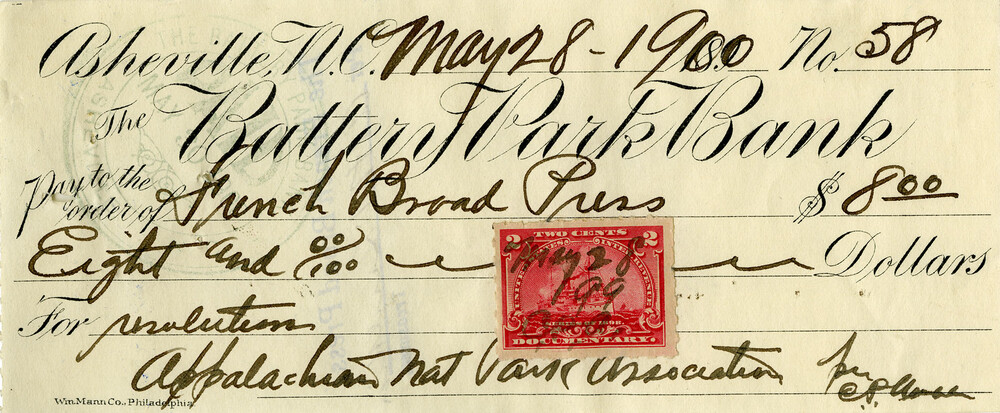 Asheville, N.C. May 28 - 1900 No. 58
The Battery Park Bank
Pay to the order of French Broad Press $ 8.00
Eight and 00/100 Dollars
TWO CENTS
2 2
UNITED STATES INTERNAL REVENUE
May 28
SERIES OF 1898.
DOCUMENTARY.
For resolutions
Appalachian Nat Park Association per
Wm. Mann Co., Philadelphia